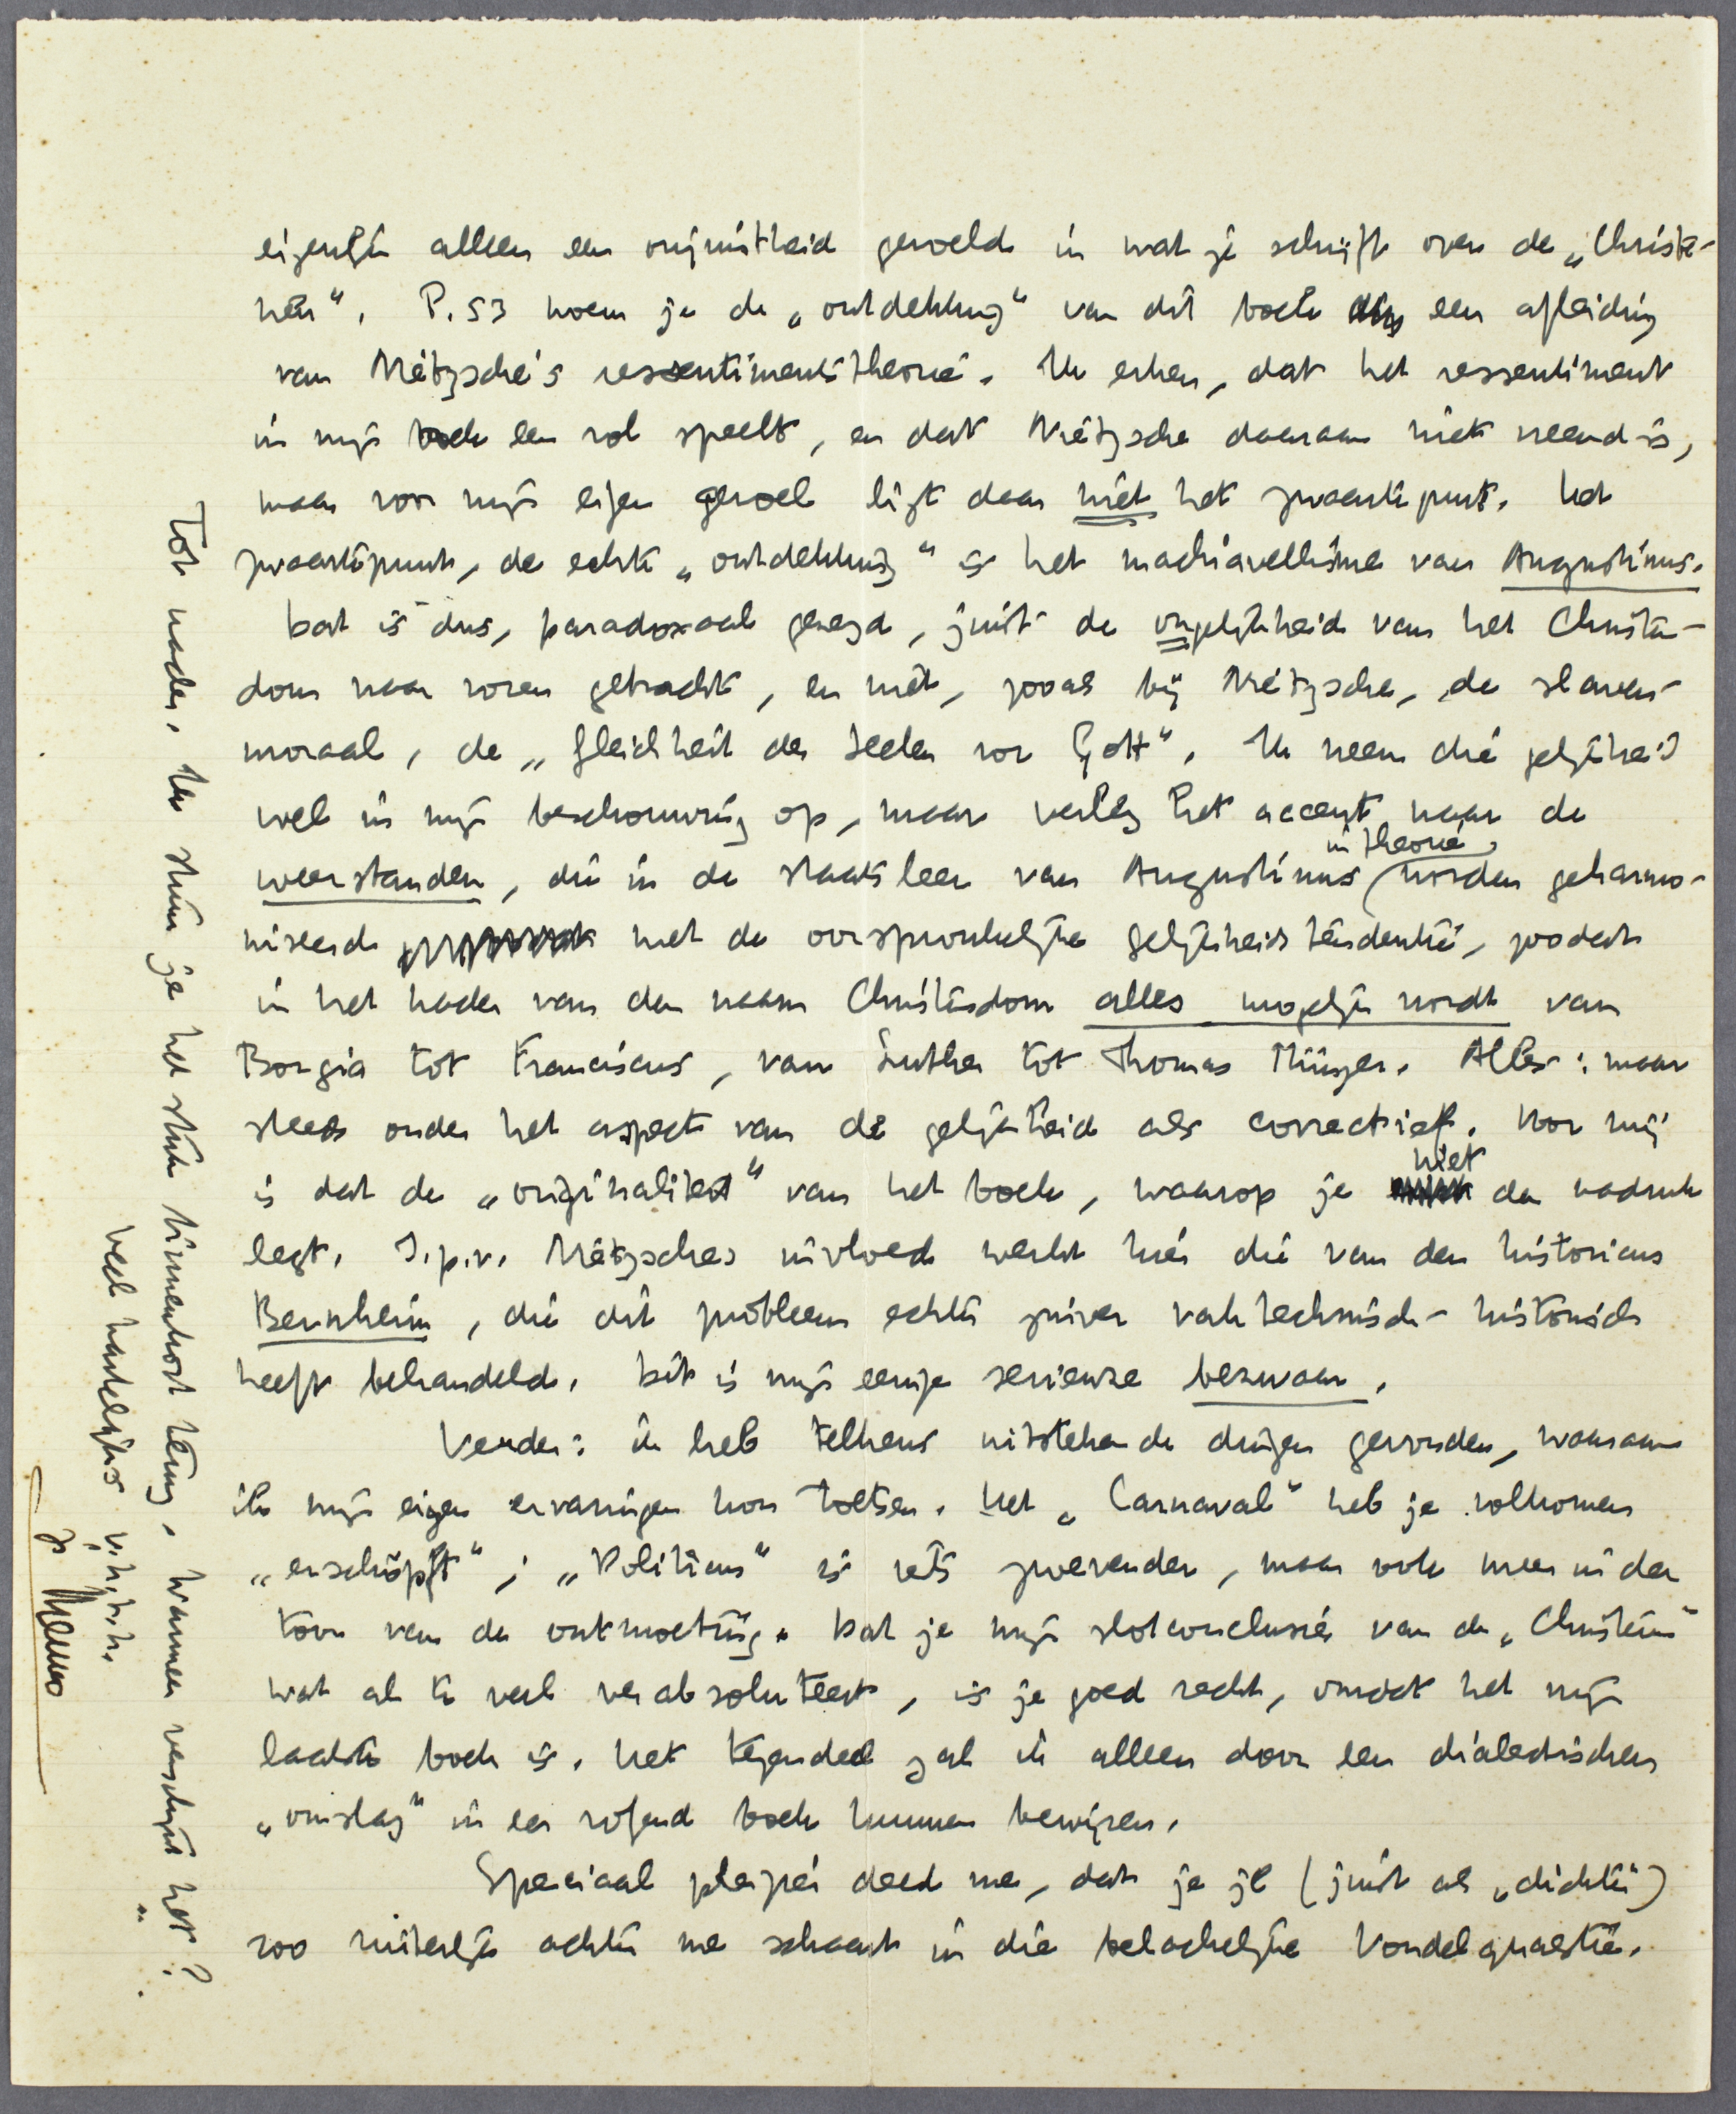 eigenlijk alleen een onjuistheid gevoeld in wat je schrijft over de „Christe-
nen". P. 53 noem je de „ontdekking" van dit boek een afleiding
van Nietzsche's ressentimentstheorie. Ik erken, dat het ressentiment
in mijn boek een rol speelt, en dat Nietzsche daaraan niet vreemd is,
maar voor mijn eigen gevoel ligt daar niet het zwaartepunt. Het
zwaartepunt, de echte „ontdekking" is het machiavellisme van Augustinus.
Dat is dus, paradoxaal gezegd, juist de ongelijkheid van het Christen-
dom naar voren gebracht, en niet, zooals bij Nietzsche, de slaven-
moraal, de „Gleichheit der Seelen vor Gott". Ik neem die gelijkheid
wel in mijn beschouwing op, maar verleg het accent naar de
weerstanden, die in de staatsleer van Augustinus in theorie worden geharmo-
niseerd met de oorspronkelijke gelijkheidstendentie, zoodat
in het kader van den naam Christendom alles mogelijk wordt van
Borgia tot Franciscus, van Luther tot Thomas Münzer. Alles: maar
steeds onder het aspect van de gelijkheid als correctief. Voor mij
is dat de „originaliteit" van het boek, waarop je niet den nadruk
legt. I.p.v. Nietzsches invloed werkt hier die van den historicus
Bernheim, die dit probleem echter zuiver vaktechnisch-historisch
heeft behandeld. Dit is mijn eenige serieuze bezwaar.
Verder: ik heb telkens uitstekende dingen gevonden, waaraan
ik mijn eigen ervaringen kon toetsen. Het „Carnaval" heb je volkomen
„erschöpft"; „Politicus" is iets zwevender, maar ook meer in den
toon van de ontmoeting. Dat je mijn slotconclusies van de „Christenen"
wat al te veel verabsoluteert, is je goed recht, omdat het mijn
laatste boek is. Het tegendeel zal ik alleen door een dialectischen
„omslag" in een volgend boek kunnen bewijzen.
Speciaal plezier deed me, dat je je (juist als „dichter")
zoo ridderlijk achter me schaart in die belachelijke Vondelquaestie.
Tot nader. Ik stuur je het stuk binnenkort terug. Wanneer verschijnt het?
Veel hartelijks v.h.t.h.
je Menno